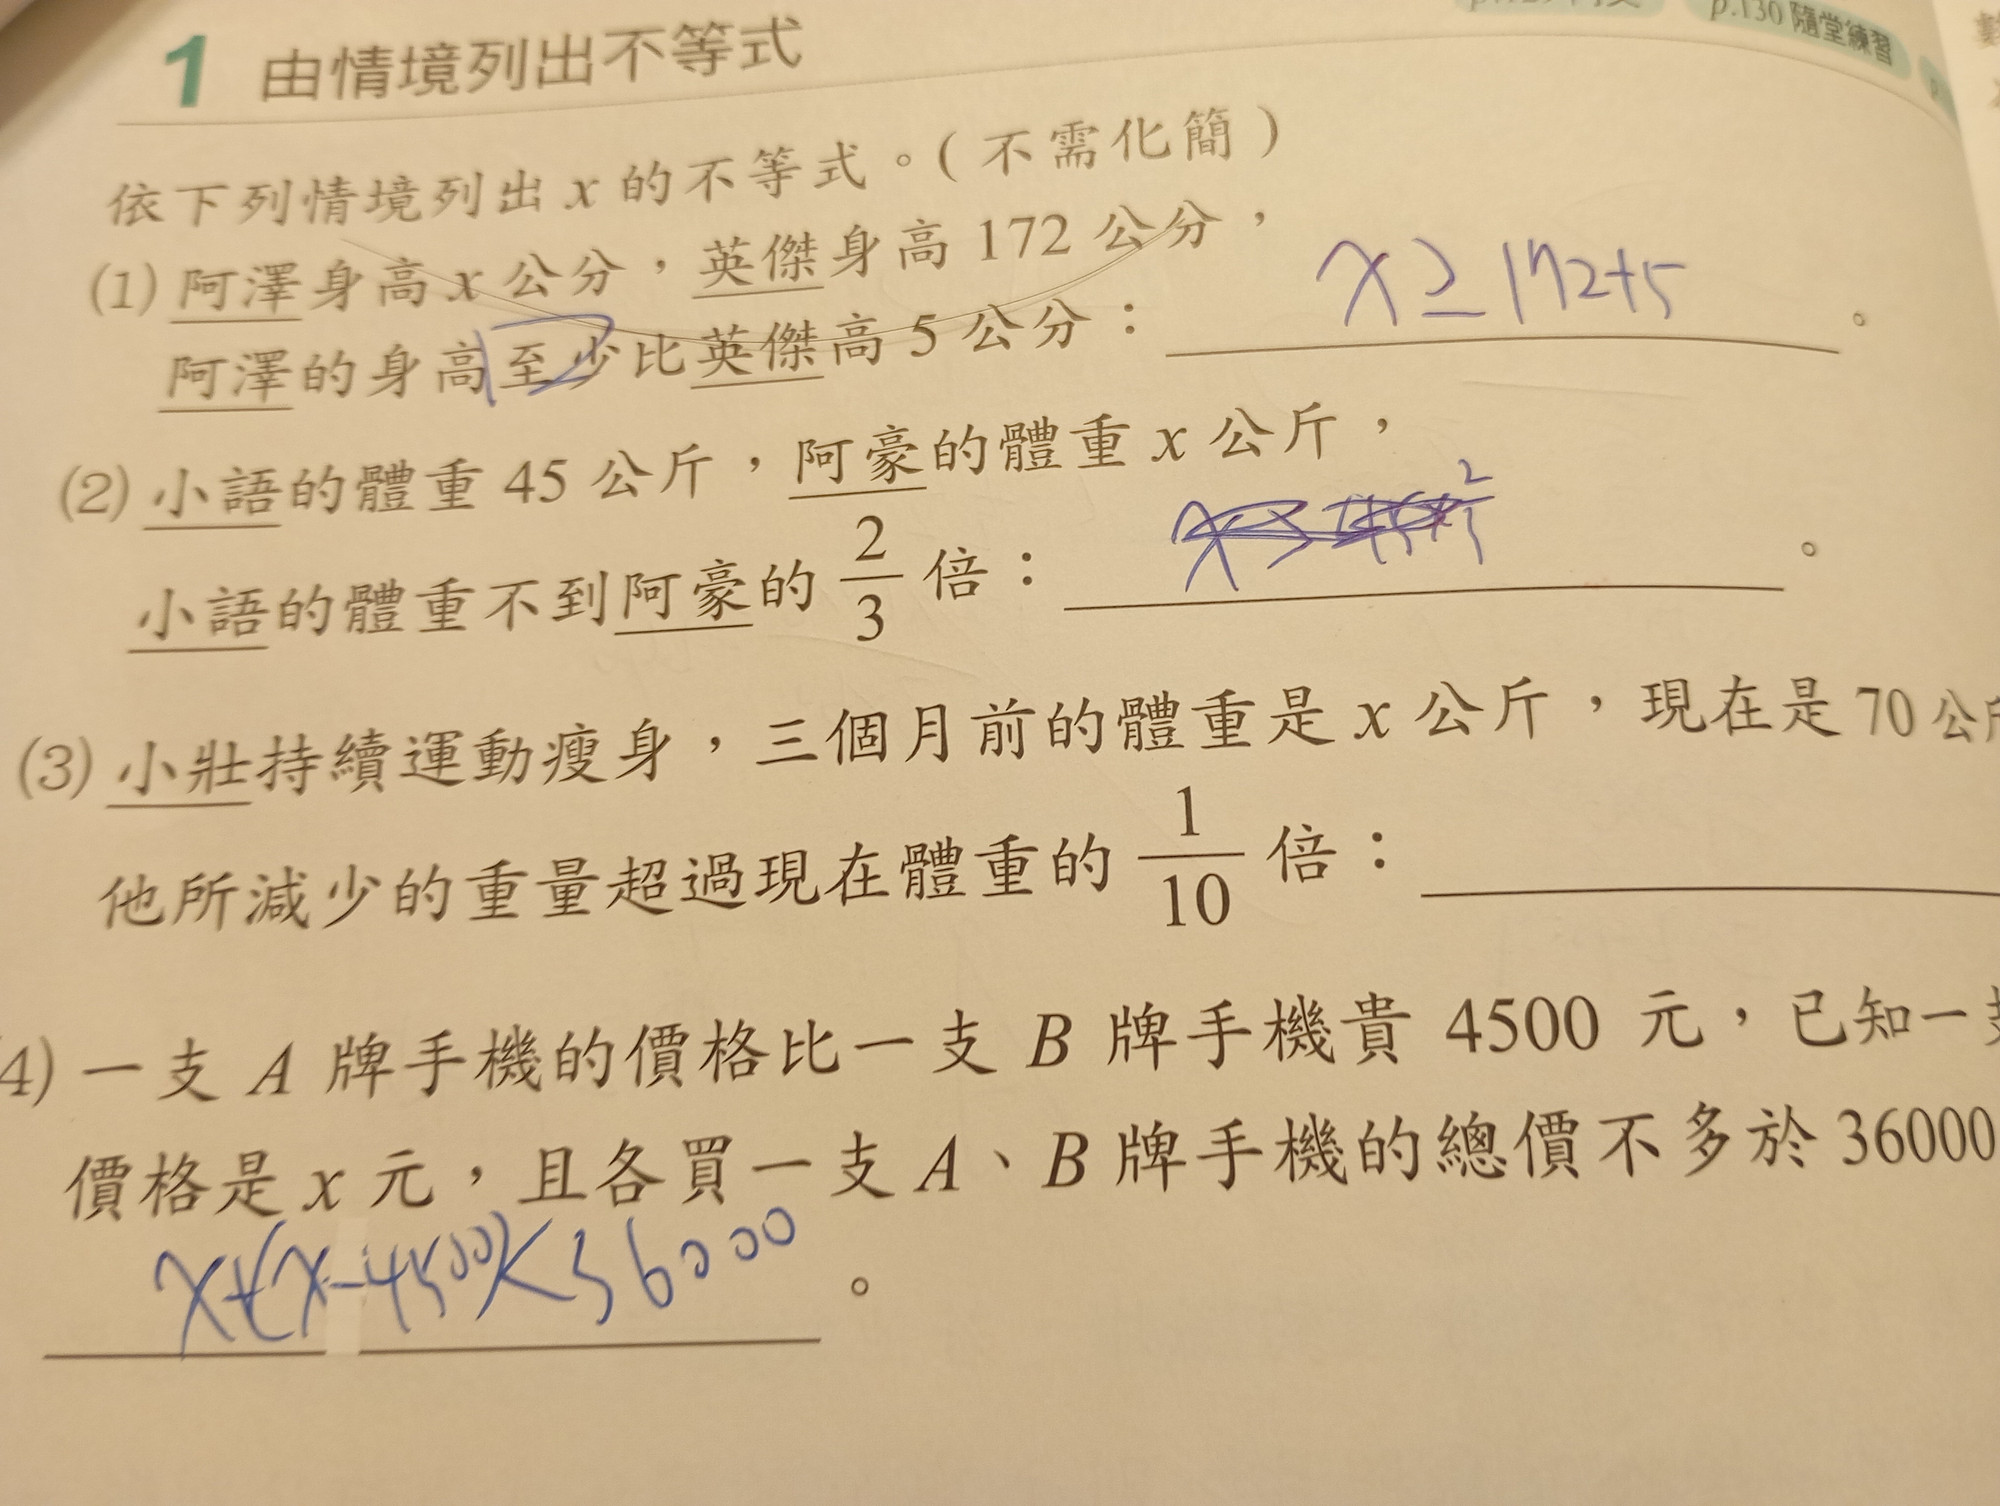 p.130 隨堂練習
1 由情境列出不等式
依下列情境列出 x 的不等式。(不需化簡)
(1) 阿澤身高 x 公分，英傑身高 172 公分，
阿澤的身高至少比英傑高 5 公分： x ≥ 172+5 。
(2) 小語的體重 45 公斤，阿豪的體重 x 公斤，
小語的體重不到阿豪的 2/3 倍： 。
(3) 小壯持續運動瘦身，三個月前的體重是 x 公斤，現在是 70 公
他所減少的重量超過現在體重的 1/10 倍：
4) 一支 A 牌手機的價格比一支 B 牌手機貴 4500 元，已知一
價格是 x 元，且各買一支 A、B 牌手機的總價不多於 36000
x+(x-4500)<36000 。